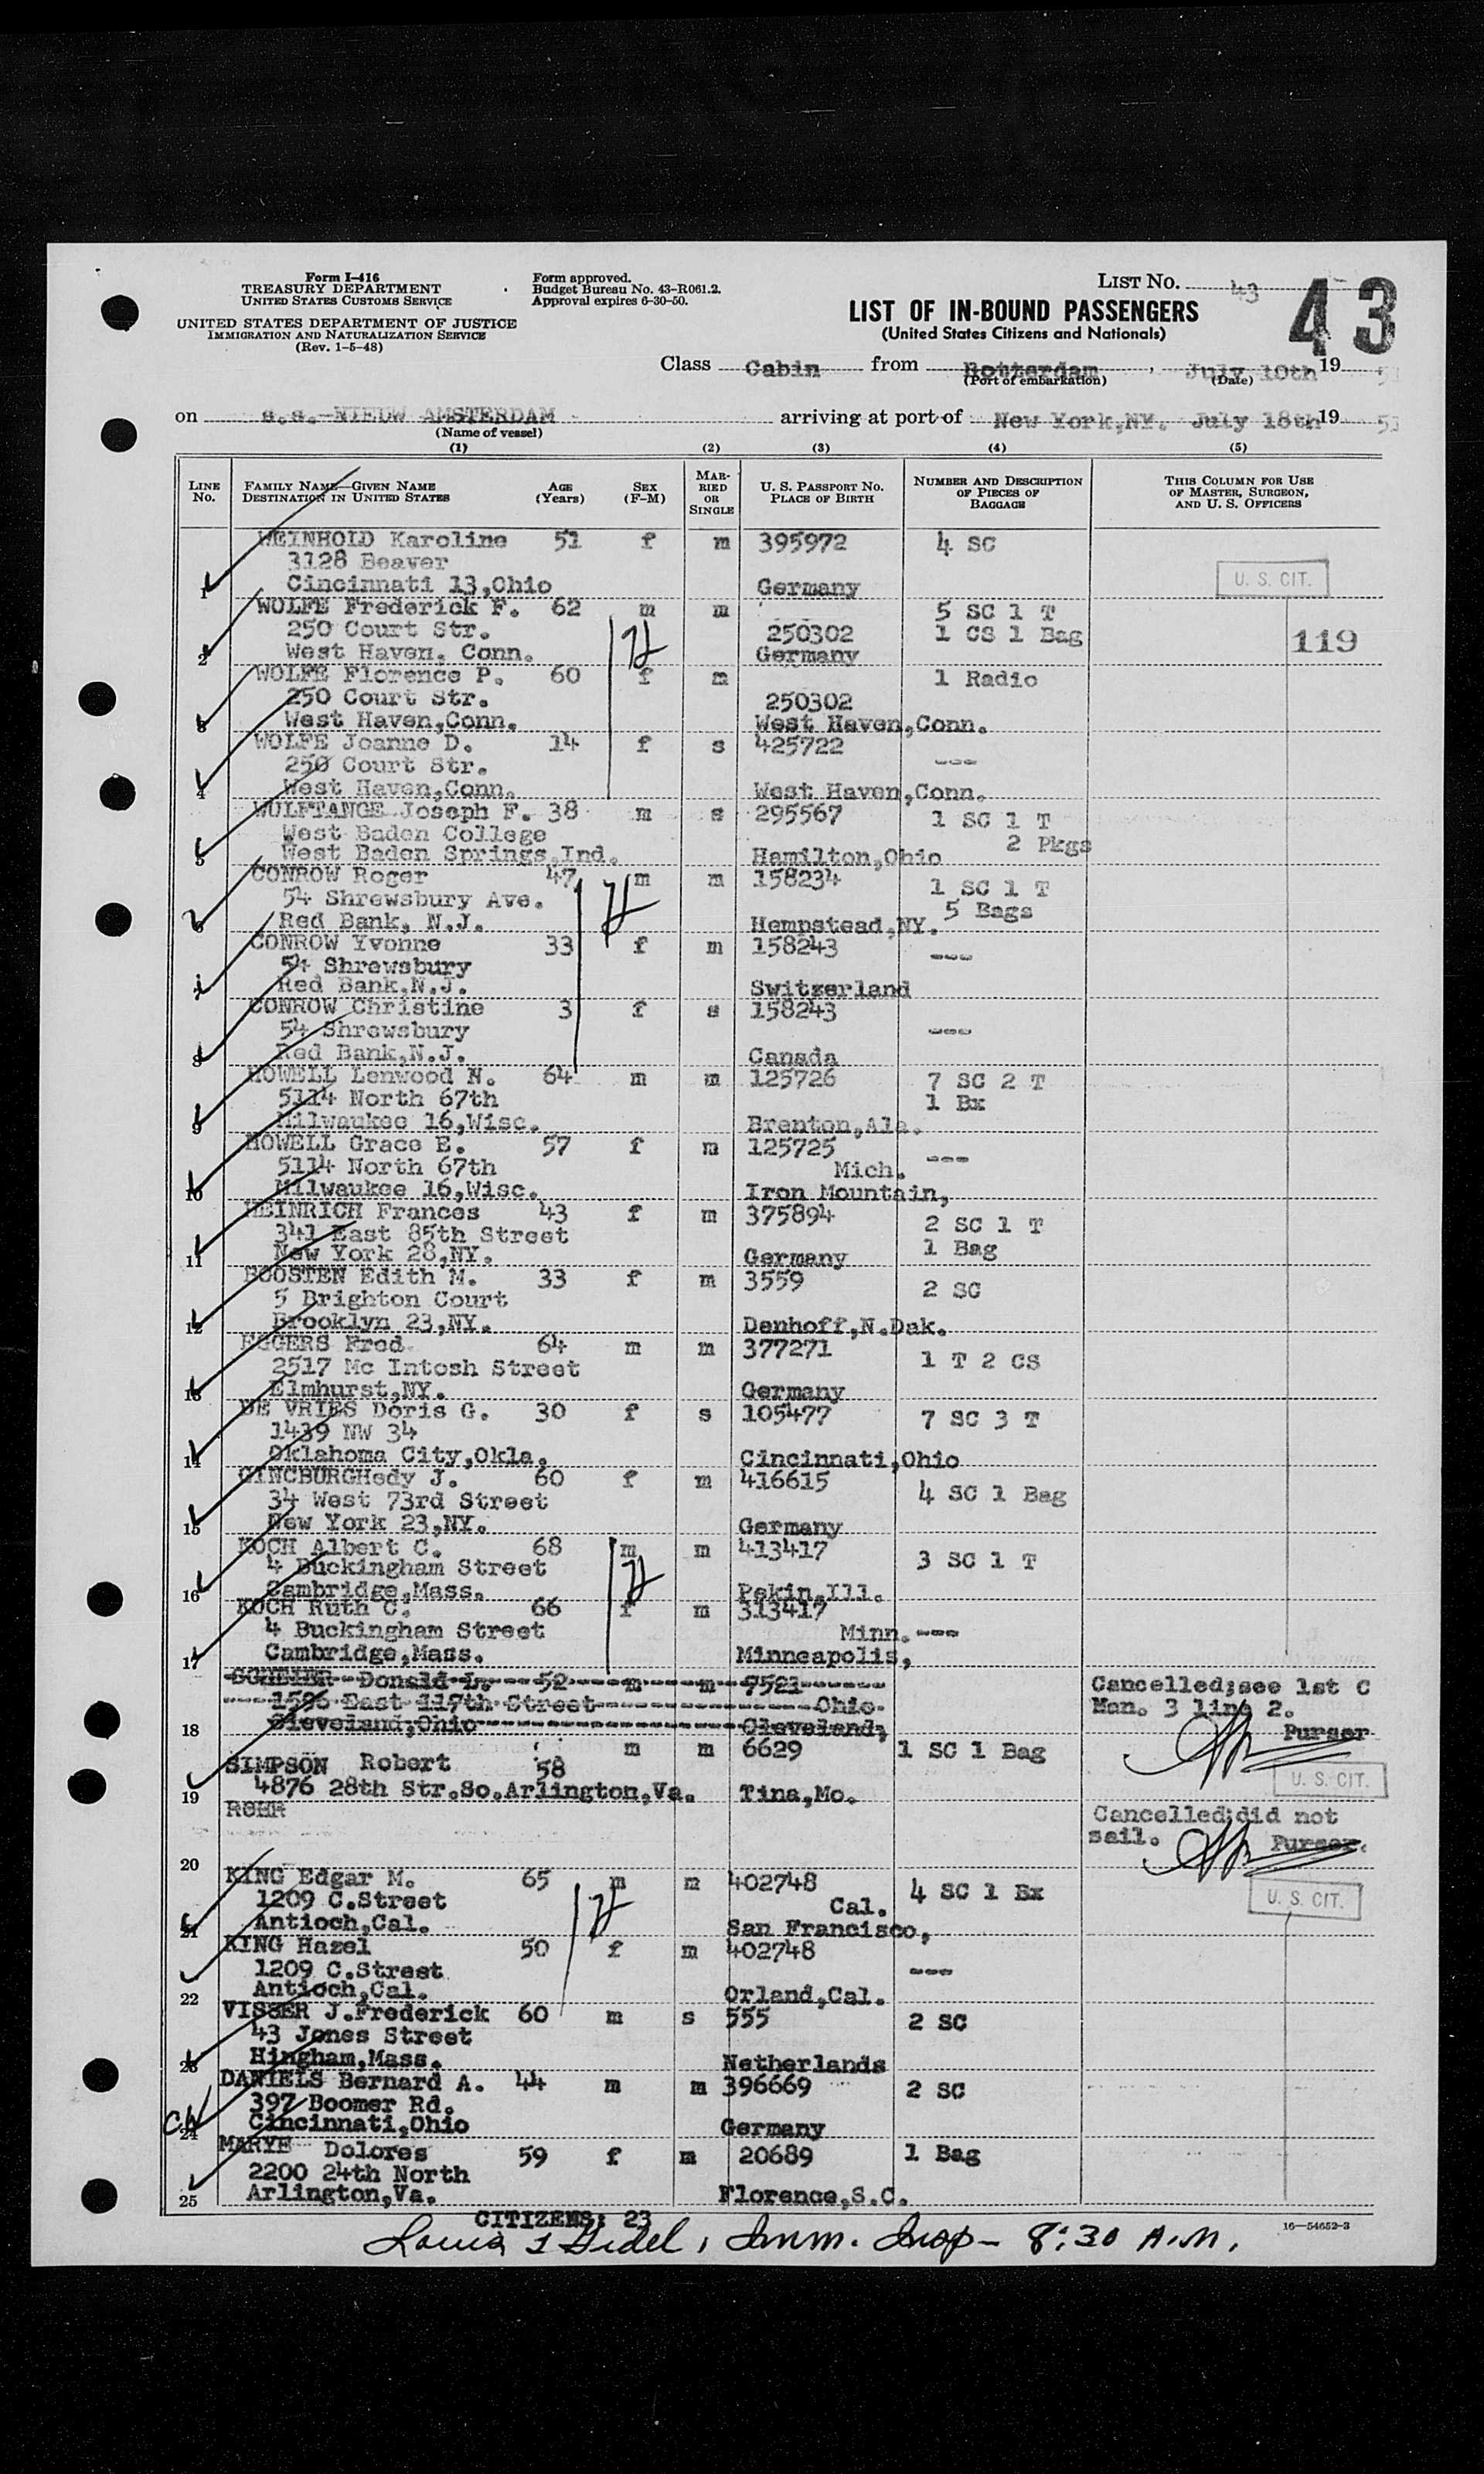 Form I-416
TREASURY DEPARTMENT
UNITED STATES CUSTOMS SERVICE
UNITED STATES DEPARTMENT OF JUSTICE
IMMIGRATION AND NATURALIZATION SERVICE
(Rev. 1-5-48)
Form approved.
Budget Bureau No. 43-R061.2.
Approval expires 6-30-50.
LIST NO. 43
43
LIST OF IN-BOUND PASSENGERS
(United States Citizens and Nationals)
Class Cabin from Rotterdam, July 10th 19
(Port of embarkation) (Date)
on s.s. NIEUW AMSTERDAM arriving at port of New York,NY. July 18th 19
(Name of vessel)
(1) (2) (3) (4) (5)
LINE No. FAMILY NAME—GIVEN NAME DESTINATION IN UNITED STATES AGE (Years) SEX (F-M) MARRIED OR SINGLE U. S. PASSPORT NO. PLACE OF BIRTH NUMBER AND DESCRIPTION OF PIECES OF BAGGAGE THIS COLUMN FOR USE OF MASTER, SURGEON, AND U. S. OFFICERS
WEINHOLD Karoline 51 f m 395972 4 SC
3128 Beaver
1 Cincinnati 13,Ohio Germany U. S. CIT.
WOLFE Frederick F. 62 m m 5 SC 1 T
250 Court Str. 250302 1 CS 1 Bag 119
2 West Haven, Conn. Germany
WOLFE Florence P. 60 f m 1 Radio
250 Court Str. 250302
3 West Haven,Conn. West Haven,Conn.
WOLFE Joanne D. 14 f s 425722
250 Court Str. ---
4 West Haven,Conn. West Haven,Conn.
WULFTANGE Joseph F. 38 m s 295567 1 SC 1 T
West Baden College 2 Pkgs
5 West Baden Springs,Ind. Hamilton,Ohio
CONROW Roger 47 m m 158234 1 SC 1 T
54 Shrewsbury Ave. 5 Bags
6 Red Bank, N.J. Hempstead,NY.
CONROW Yvonne 33 f m 158243 ---
54 Shrewsbury
7 Red Bank,N.J. Switzerland
CONROW Christine 3 f s 158243
54 Shrewsbury ---
8 Red Bank,N.J. Canada
HOWELL Lenwood N. 64 m m 125726 7 SC 2 T
5114 North 67th 1 Bx
9 Milwaukee 16,Wisc. Brenton,Ala.
HOWELL Grace E. 57 f m 125725 ---
5114 North 67th Mich.
10 Milwaukee 16,Wisc. Iron Mountain,
HEINRICH Frances 43 f m 375894 2 SC 1 T
341 East 85th Street 1 Bag
11 New York 28,NY. Germany
BOOSTEN Edith M. 33 f m 3559 2 SC
5 Brighton Court
12 Brooklyn 23,NY. Denhoff,N.Dak.
EGGERS Fred 64 m m 377271 1 T 2 CS
2517 Mc Intosh Street
13 Elmhurst,NY. Germany
DE VRIES Doris G. 30 f s 105477 7 SC 3 T
1439 NW 34
14 Oklahoma City,Okla. Cincinnati,Ohio
GINCBURGHedy J. 60 f m 416615 4 SC 1 Bag
34 West 73rd Street
15 New York 23,NY. Germany
KOCH Albert C. 68 m m 413417 3 SC 1 T
4 Buckingham Street
16 Cambridge,Mass. Pekin,Ill.
KOCH Ruth C. 66 f m 313417
4 Buckingham Street Minn. ---
17 Cambridge,Mass. Minneapolis,
Donald L. 52 m m 7521 Cancelled;see 1st C
East 117th Street Ohio Man. 3 line 2.
18 Cleveland,Ohio Cleveland, Purser
m m 6629 1 SC 1 Bag
SIMPSON Robert 58 U. S. CIT.
19 4876 28th Str.So.Arlington,Va. Tina,Mo.
Cancelled;did not
sail. Purser.
20
KING Edgar M. 65 m m 402748 4 SC 1 Bx
1209 C.Street Cal. U. S. CIT.
21 Antioch,Cal. San Francisco,
KING Hazel 50 f m 402748
1209 C.Street ---
22 Antioch,Cal. Orland,Cal.
VISSER J.Frederick 60 m s 555 2 SC
43 Jones Street
23 Hingham,Mass. Netherlands
DANIELS Bernard A. 44 m m 396669 2 SC
397 Boomer Rd.
24 Cincinnati,Ohio Germany
MARYE Dolores 59 f m 20689 1 Bag
2200 24th North
25 Arlington,Va. Florence,S.C.
CITIZENS: 23
16—54652-3
Louis Imm. Insp- 8:30 A.M.